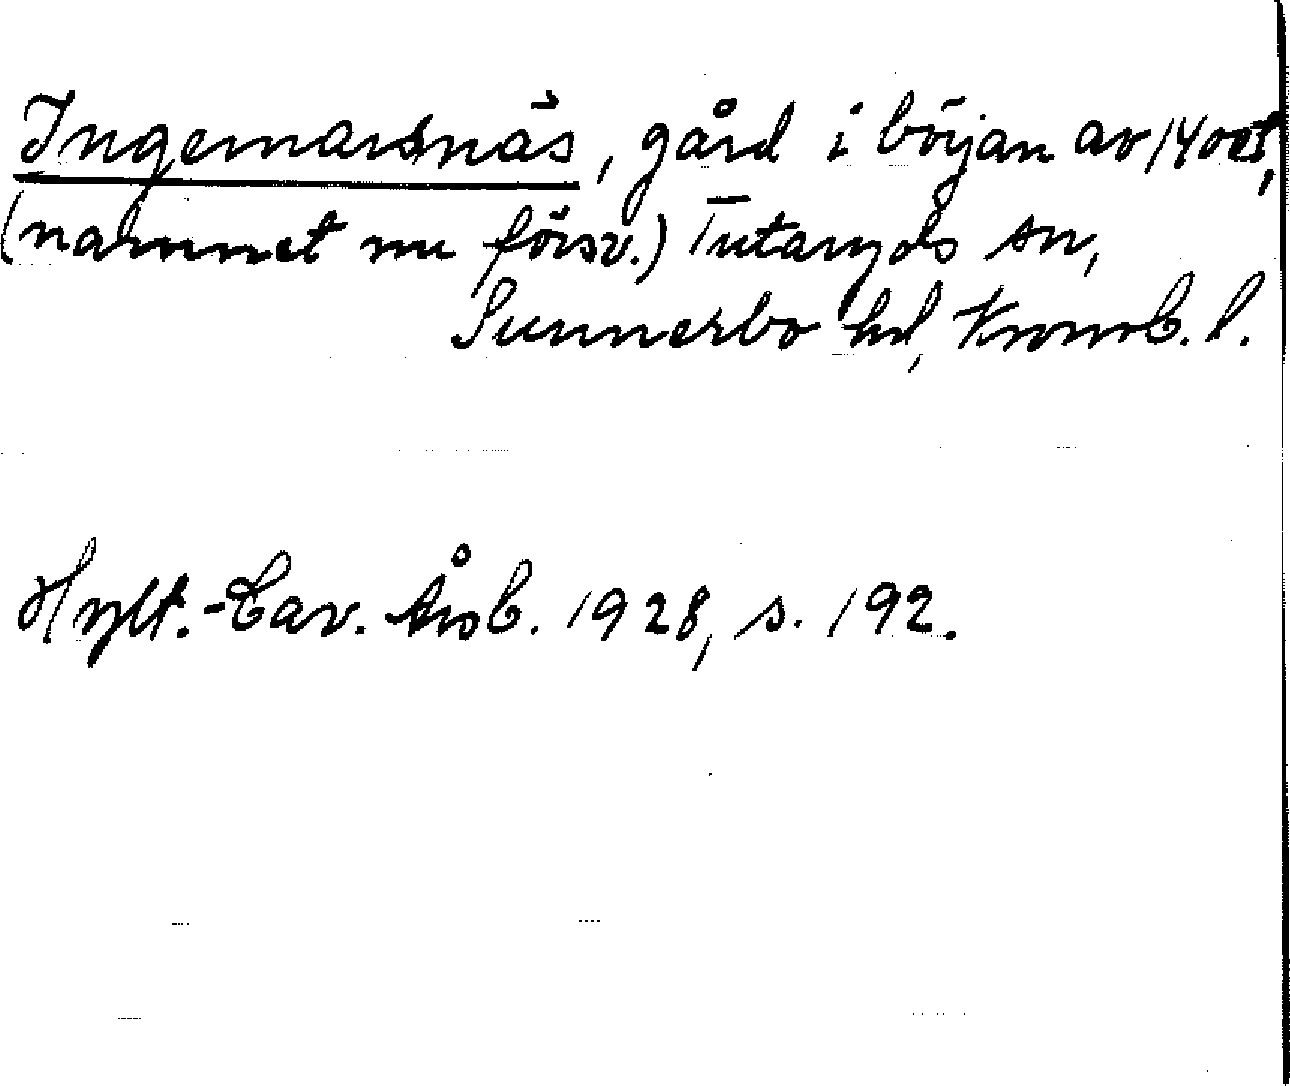 Ingemarsnäs, gård i början av 1400t,
(namnet nu försv.) Tutaryds sn,
Sunnerbo hd, Kronob. l.
Hylt.-Cav. Årsb. 1928, s. 192.